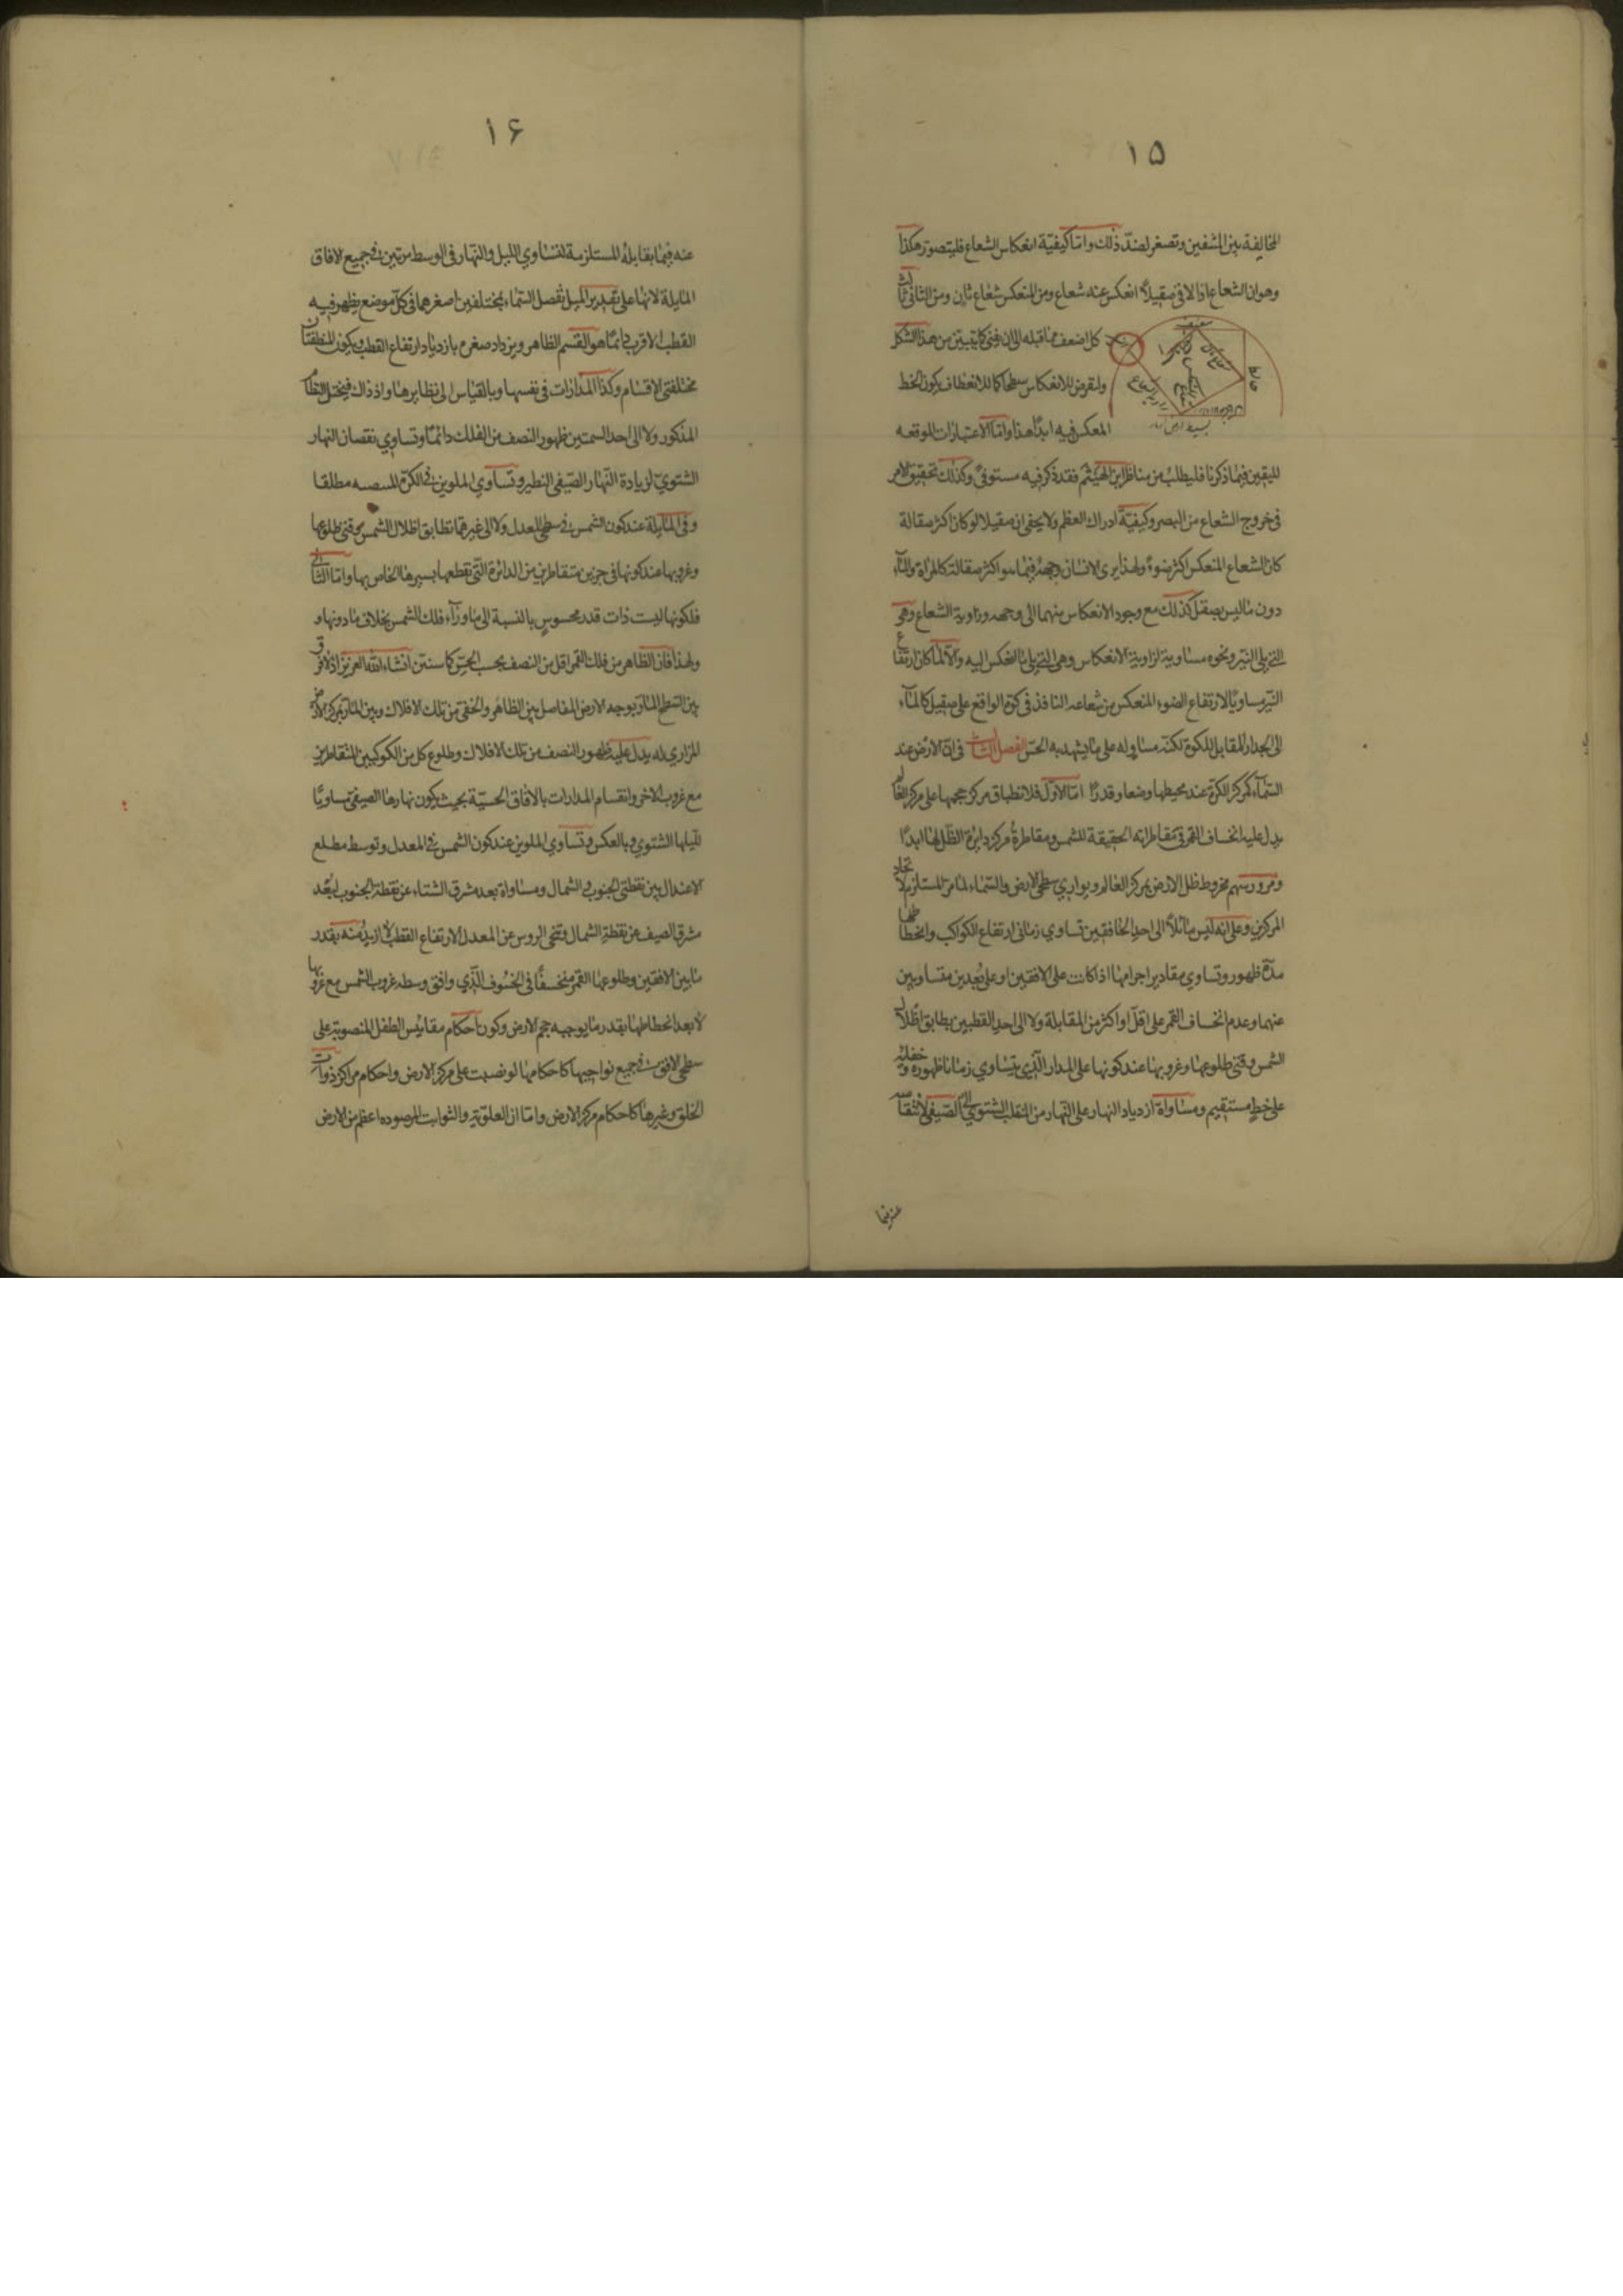 ١٥
المخالفة بين المشفين وتصغر لضد ذلك واما كيفية انعكاس الشعاع فليتصور هكذا
وهو ان الشعاع اذا لاقى صقيلا انعكس عنه شعاع ومن المنعكس شعاع ثان ومن الثانى ثالث
كل اضعف مما قبله الى ان يفنى كما يتبين من هذا الشكل
ولنفرض للانعكاس سطحا كما للانعطاف يكون الخط
المعكس فيه ابدا هذا واما الاعتبارات الموقعه
حائط
لليقين فيما ذكرنا فليطلب من مناظر ابن الهيثم فقد ذكر فيه مستوفى وكذلك تحقيق الامر
فى خروج الشعاع من البصر وكيفية ادراك العظم ولا يخفى ان صقيلا لو كان اكثر صقالة
كان الشعاع المنعكس اكثر ضوء ولهذا يرى الانسان وجهه فيما هو اكثر صقالة كالمرآة والماء
دون ما ليس بصقل كذلك مع وجود الانعكاس منهما الى وجهه وزاوية الشعاع وهى
التى يلى النير ونحوه مساوية لزاوية الانعكاس وهى التى يلى ما انعكس اليه والا لما كان ارتفاع
النير مساويا لارتفاع الضوء المنعكس من شعاعه النافذ فى كوة الواقع على صقيل كالماء
الى الجدار المقابل للكوة لكنه مساو له على ما يشهد به الحس الفصل الثالث فى ان الارض عند
السماء كمركز الكرة عند محيطها وضعا وقدرا اما الاول فلانطباق مركز حجمها على مركز العالم
يدل عليه انخساف القمر فى مقاطراته الحقيقة للشمس ومقاطرة مركز دايرة الظل لها ابدا
ومرور سهم مخروط ظل الارض بمركز العالم ويوازى سطحى الارض والسماء لما مر المستلزم لاتحاد
المركزين وعلى انه ليس مائلا الى احد الخافقين تساوى زمانى ارتفاع الكواكب وانحطاطها
مدة ظهور وتساوى مقادير اجرامها اذا كانت على الافقين او على بعدين متساويين
عنهما وعدم انخساف القمر على اقل او اكثر من المقابلة ولا الى احد القطبين يطابق اظلال
الشمس وقتى طلوعها وغروبها عند كونها على المدار الذى يتساوى زمانا ظهوره وخفائه
على خط مستقيم ومساواة ازدياد النهار على النهار من المنقلب الشتوى الى الصيفى لانتقاصه
عنه فيما
١۶
عنه فيما يقابله المستلزمة لتساوى الليل والنهار فى الوسط مرتين فى جميع الافاق
المايلة لانها على تقدير الميل تفصل السماء بمختلفين اصغرهما فى كل موضع يظهر فيه
القطب الاقرب دائما هو القسم الظاهر ويزداد صغره بازدياد ارتفاع القطب ويكون المنطقتان
مختلفتى الاقسام وكذا المدارات فى نفسها وبالقياس الى نظايرها واذ ذاك فيختل النظام
المذكور ولا الى احد السمتين ظهور النصف من الفلك دائما وتساوى نقصان النهار
الشتوى لزيادة النهار الصيفى النظير وتساوى الملوين فى الكرة مطلقا
وفى المايلة عند كون الشمس فى سطح المعدل ولا الى غيرهما تطابق اظلال الشمس وقتى طلوعها
وغروبها عند كونها فى جزئين متقاطرين من الدائرة التى تقطعها بسيرها الخاص بها واما الثانى
فلكونها ليست ذات قدر محسوس بالنسبة الى ما وراء فلك الشمس بخلاف ما دونها و
ولهذا فان الظاهر من فلك القمر اقل من النصف بحسب الحس كما سنبين انشاء الله العزيز اذ لا فرق
بين السطح المار بوجه الارض الفاصل بين الظاهر والخفى من تلك الافلاك وبين المار بمركز الارض
الموازى له يدل عليه ظهور النصف من تلك الافلاك وطلوع كل من الكوكبين المتقاطرين
مع غروب الاخر وانقسام المدارات بالافاق الحسية بحيث يكون نهارها الصيفى مساويا
لليلها الشتوى وبالعكس وتساوى الملوين عند كون الشمس فى المعدل وتوسط مطلع
الاعتدال بين نقطتى الجنوب والشمال ومساواة بعد مشرق الشتاء عن نقطة الجنوب لبعد
مشرق الصيف عن نقطة الشمال وتنحى الروس عن المعدل لارتفاع القطب لا ازيد منه بقدر
ما بين الافقين وطلوعها القمر منخسفا فى الخسوف الذى وافق وسطه غروب الشمس مع غروبها
لا بعد انحطاطها بقدر ما يوجبه حجم الارض وكون احكام مقائيس الظل المنصوبة على
سطح الافق فى جميع نواحيها كاحكامها لو نصبت على مركز الارض واحكام مراكز ذوات
الحلق وغيرها كاحكام مركز الارض واما ان العلوية والثوابت المرصوده اعظم من الارض